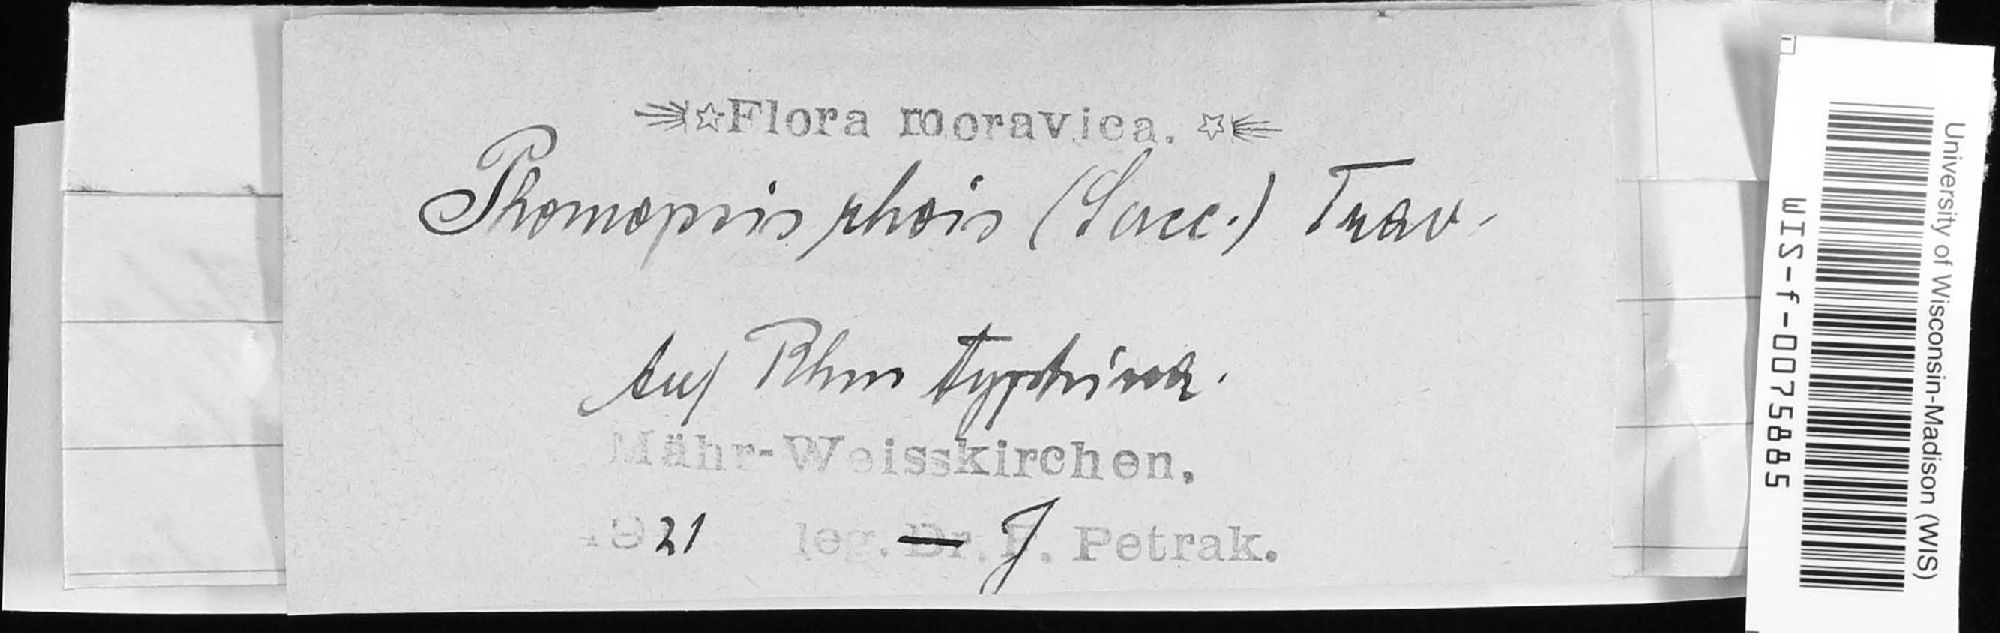 Flora moravica.
Phomopsis rhois (Sacc.) Trav.
Auf Rhus typhina.
Mähr-Weisskirchen,
1921 leg. Dr. J. Petrak.
University of Wisconsin-Madison (WIS)
WIS-f-0075885